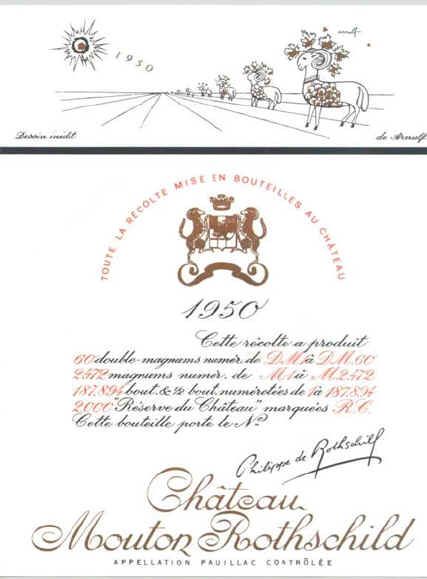 Arnulf
1950
Dessin inédit de Arnulf
TOUTE LA RÉCOLTE MISE EN BOUTEILLES AU CHÂTEAU
1950
Cette récolte a produit
60 double-magnums numér. de D.M.1 à D.M.60
2572 magnums numér. de M.1 à M.2572
187.894 bout. & ½ bout. numérotées de 1 à 187.894
2000 "Réserve du Château" marquées R.C.
Cette bouteille porte le Nº
Philippe de Rothschild
Château
Mouton Rothschild
APPELLATION PAUILLAC CONTRÔLÉE